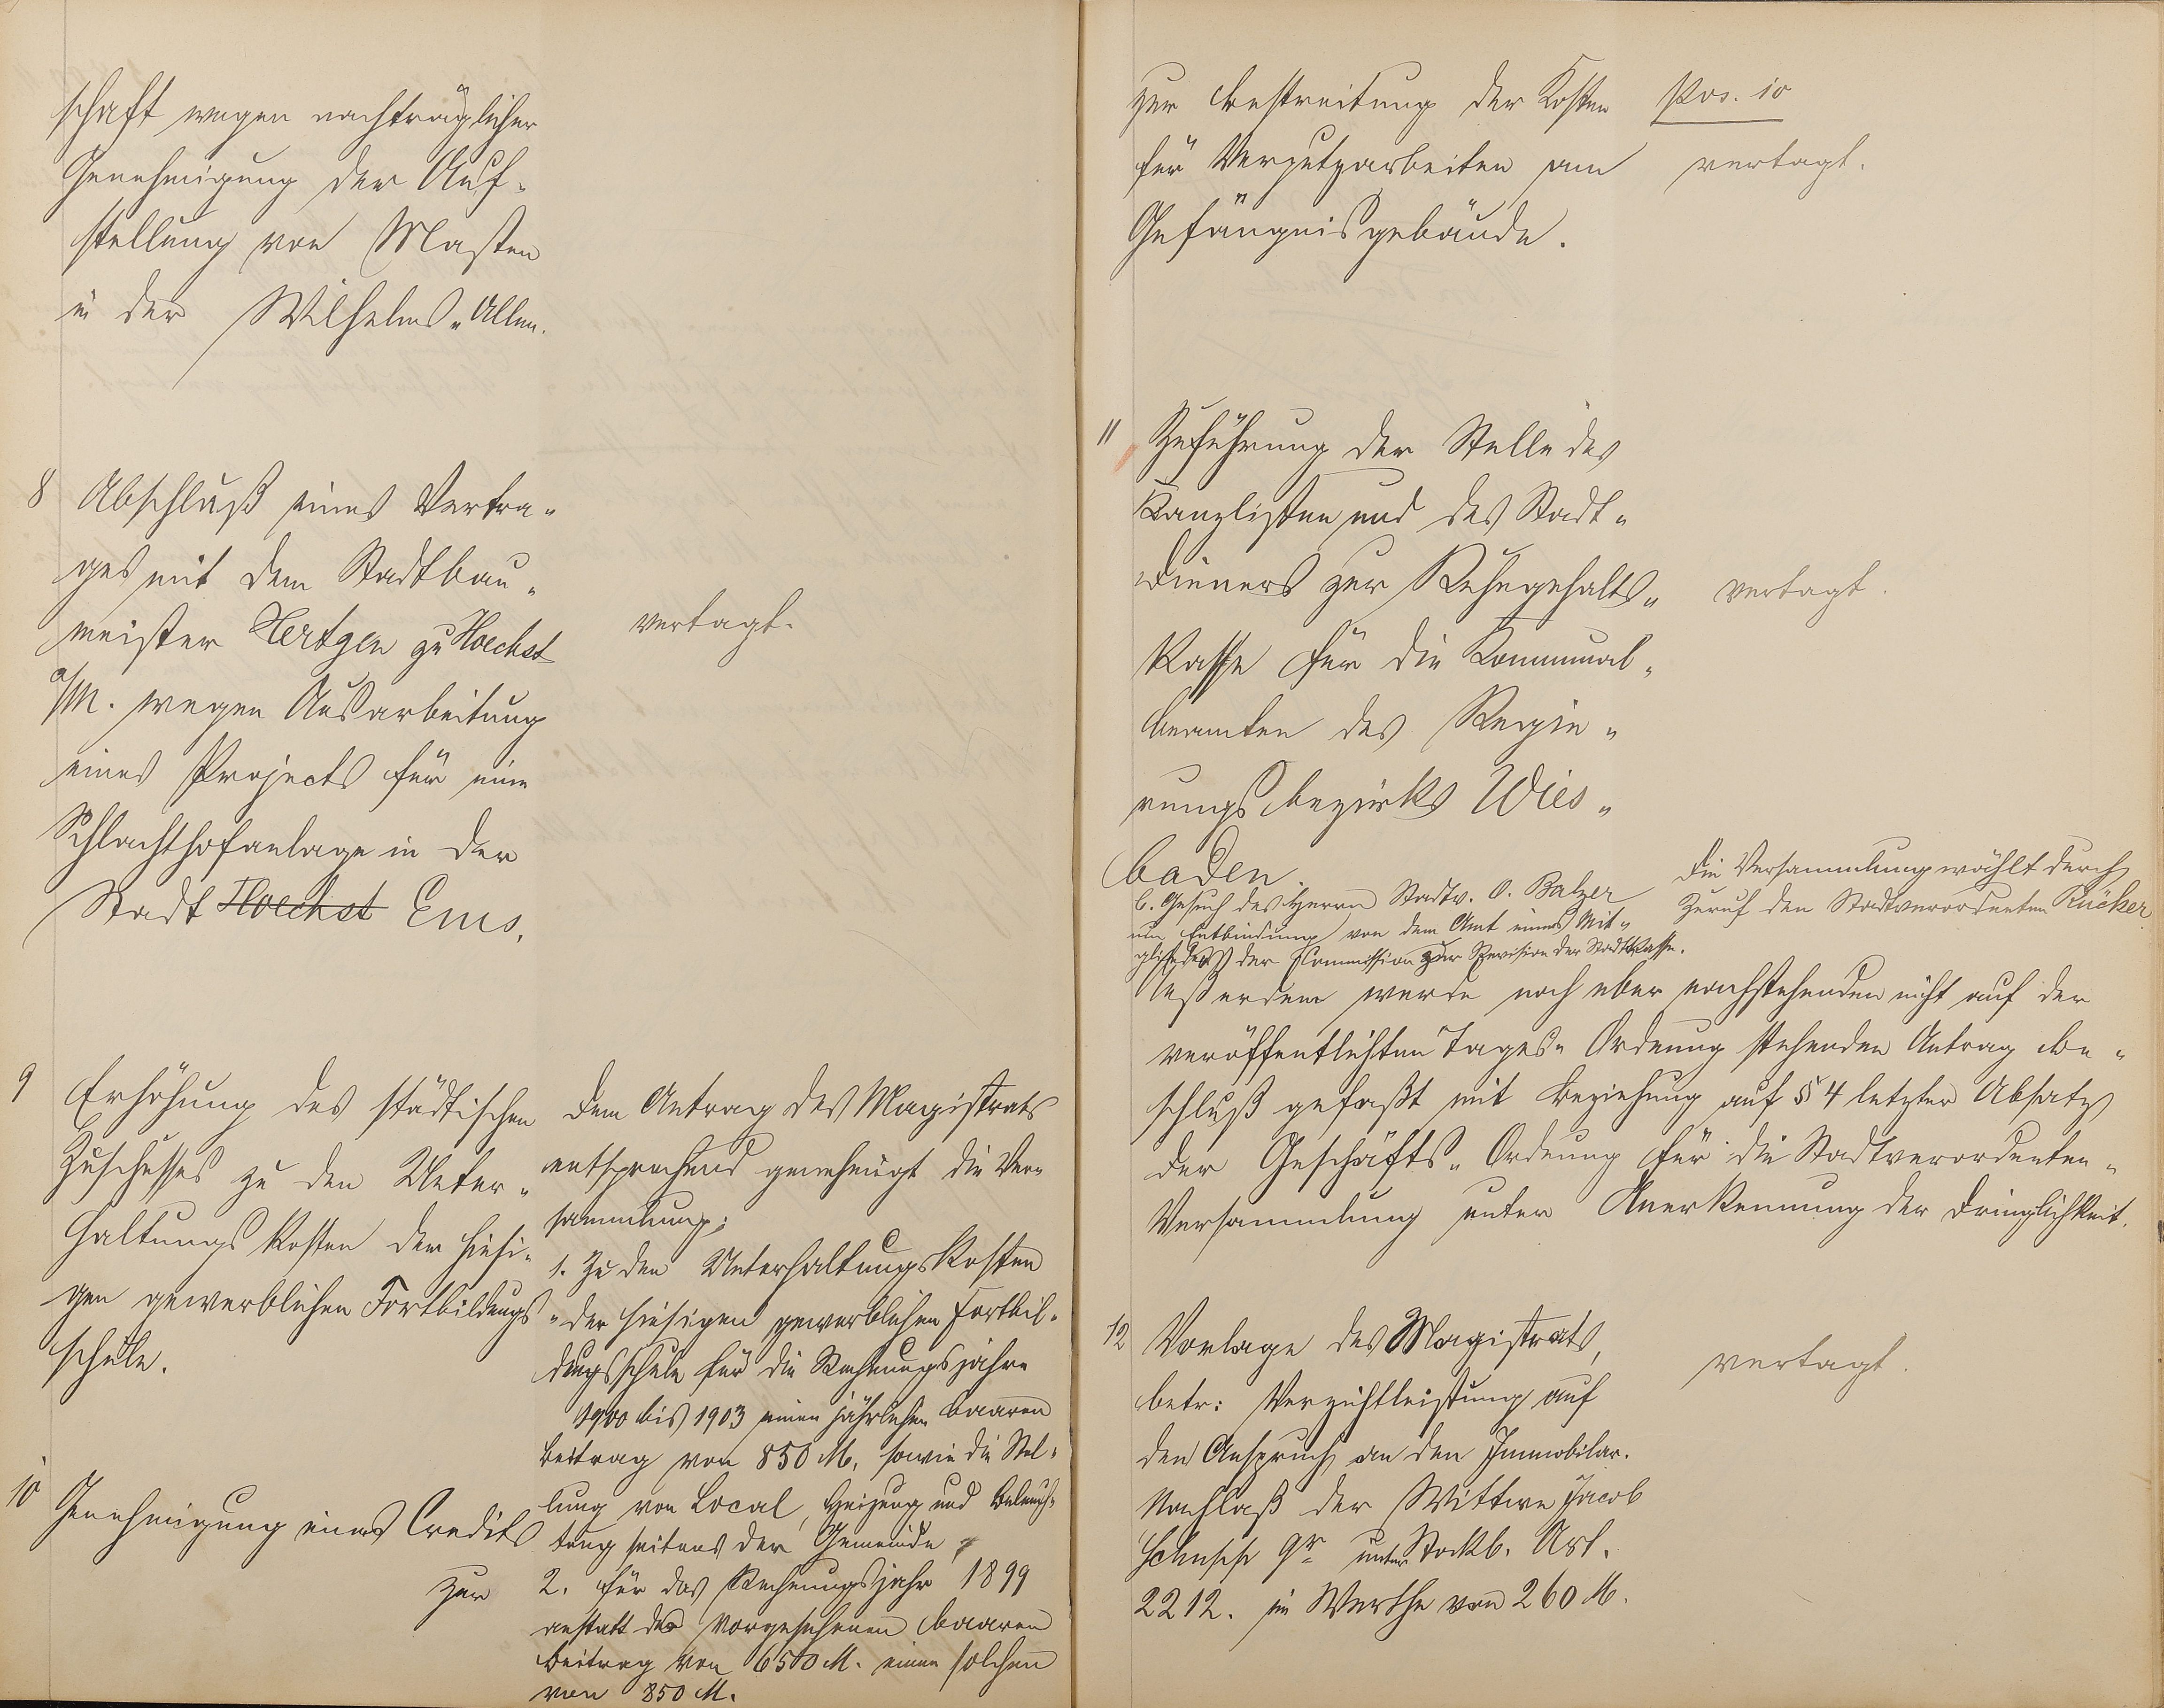 schaft wegen nachträglicher
Genehmigung der Auf-
stellung von Masten
in der Wilhelms-Allee.
8 Abschluß eines Vertra-
ges mit dem Stadtbau-
meister Hertgen zu Hoechst
a/M. wegen Ausarbeitung
eines Projects für eine
Schlachthofanlage in der
Stadt Hoechst Ems.
vertagt.
9 Erhöhung des städtischen
Zuschusses zu den Unter-
haltungskosten der hiesi-
gen gewerblichen Fortbildungs-
schule.
Dem Antrag des Magistrats
entsprechend genehmigt die Ver-
sammlung:
1. Zu den Unterhaltungskosten
der hiesigen gewerblichen Fortbil-
dungsschule für die Rechnungsjahre
1900 bis 1903 einen jährlichen baaren
Beitrag von 850 M., sowie die Stel-
lung von Local, Heizung und Beleuch-
tung seitens der Gemeinde,
2. für das Rechnungsjahr 1899
anstatt des vorgesehenen baaren
Beitrag von 650 M. einen solchen
von 850 M.
10 Genehmigung eines Credits
zur
zur Bestreitung der Kosten
für Verputzarbeiten am
Gefängnisgebäude.
Pos. 10
vertagt.
11 Zuführung der Stelle des
Kanzlisten und des Stadt-
dieners zur Ruhegehalts-
Kasse für die Kommunal-
beamten des Regie-
rungsbezirks Wies-
baden.
vertagt.
6. Gesuch des Herrn Stadtv. O. Balzer
um Entbindung von dem Amt eines Mit-
gliedes der Commission zur Revision der Stadtkasse.
Die Versammlung wählt durch
Zuruf den Stadtverordneten Rücker
Außerdem wurde noch über nachstehenden nicht auf der
veröffentlichten Tages-Ordnung stehenden Antrag Be-
schluß gefaßt mit Beziehung auf § 4 letzter Absatz
der Geschäfts-Ordnung für die Stadtverordneten-
Versammlung unter Anerkennung der Dringlichkeit.
12 Vorlage des Magistrats,
betr: Verzichtleistung auf
den Anspruch an den Immobilar-
Nachlaß der Wittwe Jacob
unter Stockb. Art.
2212. im Werthe von 260 M.
vertagt.